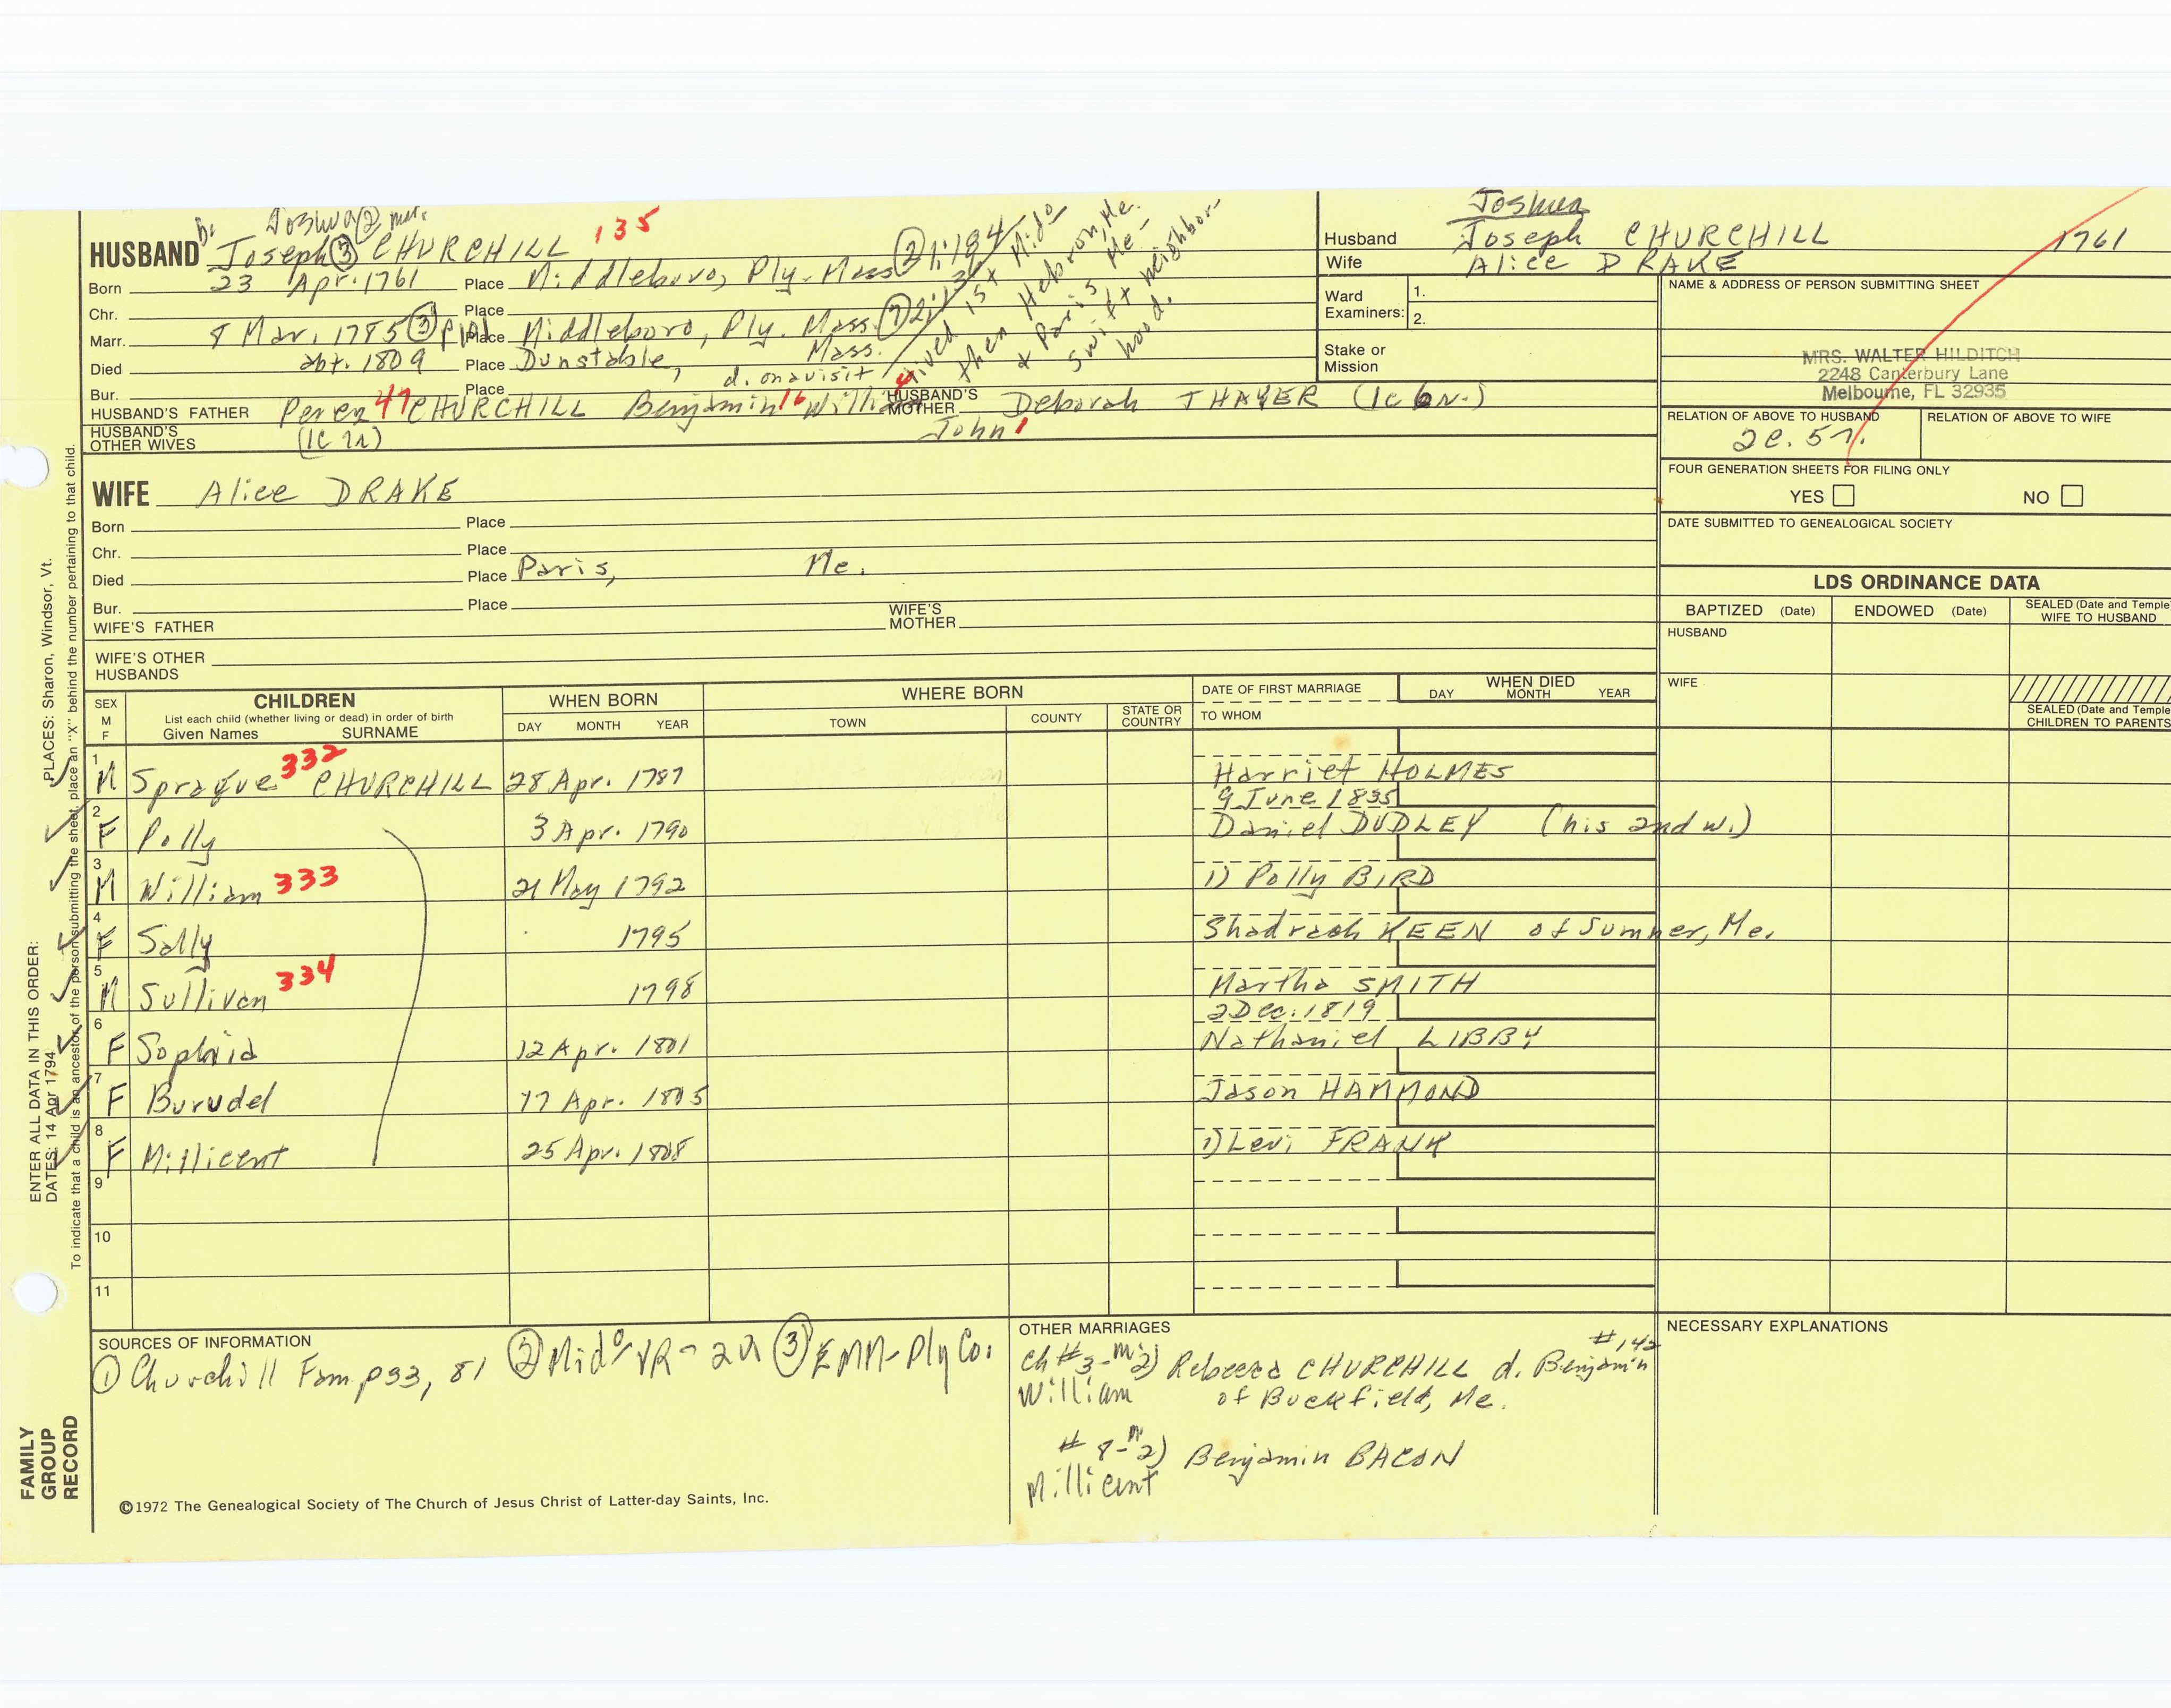 b: Joshua ② mar.
HUSBAND Joseph ③ CHURCHILL 135
Born 23 Apr. 1761 Place Middleboro, Ply. Mass ② 1:184
Chr. Place
Marr. 8 Mar. 1785 ③ Place Middleboro, Ply. Mass.
Died abt. 1809 Place Dunstable, Mass.
d. on a visit
Bur. Place
lived 1st Mido
then Hebron, Me.
& Paris Me-
Swift neighbor-
hood.
HUSBAND'S FATHER Perez 47 CHURCHILL Benjamin 16 William 4 HUSBAND'S MOTHER Deborah THAYER (1c 6n.)
John 1
HUSBAND'S OTHER WIVES (1c 7n)
WIFE Alice DRAKE
Born Place
Chr. Place
Died Place Paris, Me.
Bur. Place
WIFE'S FATHER WIFE'S MOTHER
WIFE'S OTHER HUSBANDS
Joshua
Husband Joseph CHURCHILL 1761
Wife Alice DRAKE
Ward Examiners: 1.
2.
Stake or Mission
NAME & ADDRESS OF PERSON SUBMITTING SHEET
MRS. WALTER HILDITCH
2248 Canterbury Lane
Melbourne, FL 32935
RELATION OF ABOVE TO HUSBAND RELATION OF ABOVE TO WIFE
2c. 5n.
FOUR GENERATION SHEETS FOR FILING ONLY
YES NO
DATE SUBMITTED TO GENEALOGICAL SOCIETY
LDS ORDINANCE DATA
BAPTIZED (Date) ENDOWED (Date) SEALED (Date and Temple
WIFE TO HUSBAND
HUSBAND
WIFE
SEALED (Date and Temple
CHILDREN TO PARENTS
SEX M F CHILDREN WHEN BORN WHERE BORN DATE OF FIRST MARRIAGE WHEN DIED
List each child (whether living or dead) in order of birth
Given Names SURNAME DAY MONTH YEAR TOWN COUNTY STATE OR COUNTRY TO WHOM DAY MONTH YEAR
1 M Sprague 332 CHURCHILL 28 Apr. 1787 Harriet HOLMES
2 F Polly 3 Apr. 1790 9 June 1835 Daniel DUDLEY (his 2nd w.)
3 M William 333 21 May 1792 1) Polly BIRD
4 F Sally 1795 Shadrach KEEN of Sumner, Me.
5 M Sullivan 334 1798 Martha SMITH
6 F Sophia 12 Apr. 1801 2 Dec. 1819 Nathaniel LIBBY
7 F Burudel 17 Apr. 1805 Jason HAMMOND
8 F Millicent 25 Apr. 1808 1) Levi FRANK
9
10
11
SOURCES OF INFORMATION
① Churchill Fam p 33, 81 ② Mido VR- ③ EMM-Ply Co.
OTHER MARRIAGES
#142
Ch #3-m 2) Rebecca CHURCHILL d. Benjamin
William of Buckfield, Me.
#8-m 2) Benjamin BACON
Millicent
NECESSARY EXPLANATIONS
©1972 The Genealogical Society of The Church of Jesus Christ of Latter-day Saints, Inc.
FAMILY
GROUP
RECORD
ENTER ALL DATA IN THIS ORDER:
DATES: 14 Apr 1794 PLACES: Sharon, Windsor, Vt.
To indicate that a child is an ancestor of the person submitting the sheet, place an "X" behind the number pertaining to that child.